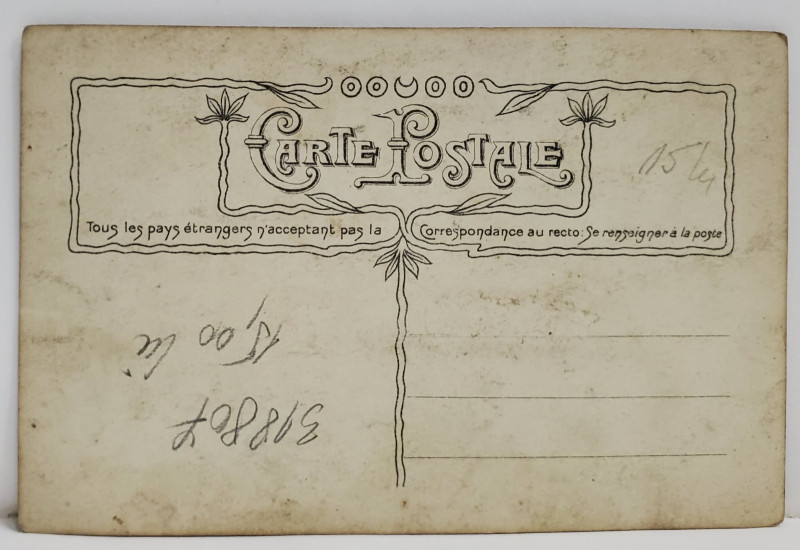 CARTE POSTALE
Tous les pays étrangers n'acceptant pas la Correspondance au recto: Se renseigner à la poste
15 lei
15,00 lei
318807